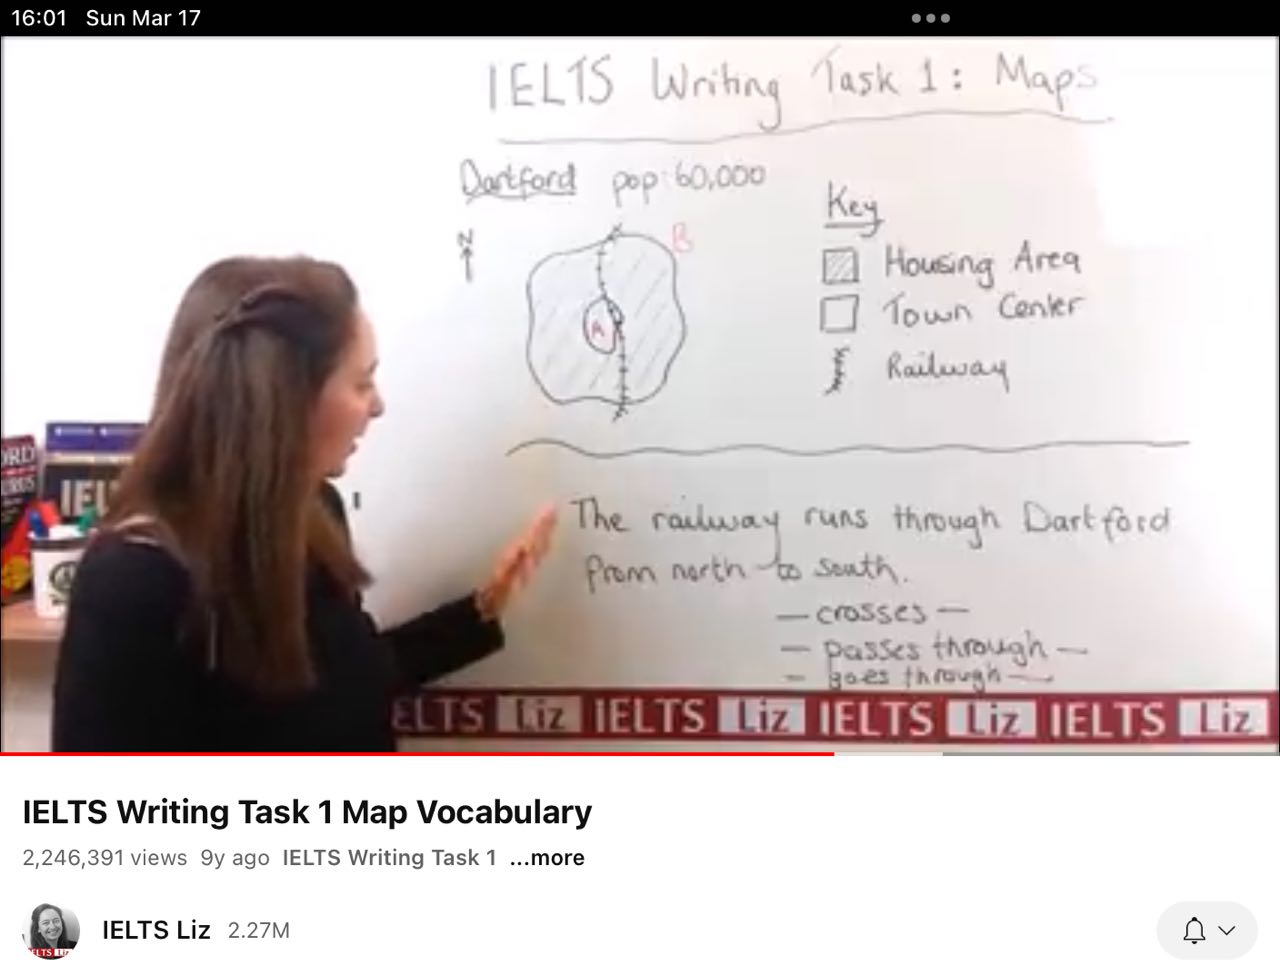 16:01 Sun Mar 17
IELTS Writing Task 1: Maps
Dartford pop: 60,000
N
B
A
Key
Housing Area
Town Center
Railway
The railway runs through Dartford
from north to south.
— crosses —
— passes through —
- goes through —
IEL
ELTS Liz IELTS Liz IELTS Liz IELTS Liz
IELTS Writing Task 1 Map Vocabulary
2,246,391 views 9y ago IELTS Writing Task 1 ...more
IELTS Liz 2.27M